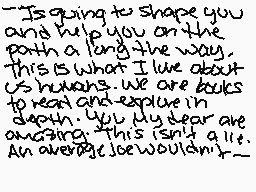 ~Is going to shape you
and help you on the
path a long the way.
This is what I love about
us humans. we are books
to read and explore in
depth. You my dear are
amazing. This isn't a lie.
An average Joe wouldn't~